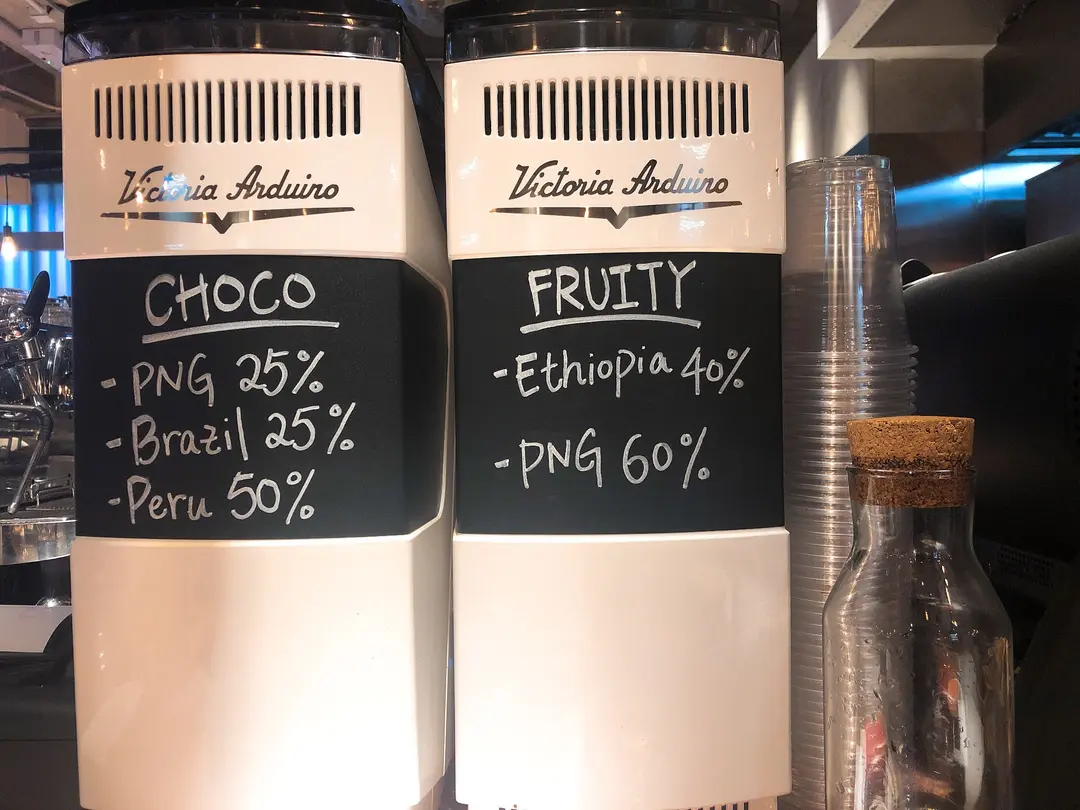 Victoria Arduino
CHOCO
- PNG 25%
- Brazil 25%
- Peru 50%
Victoria Arduino
FRUITY
- Ethiopia 40%
- PNG 60%